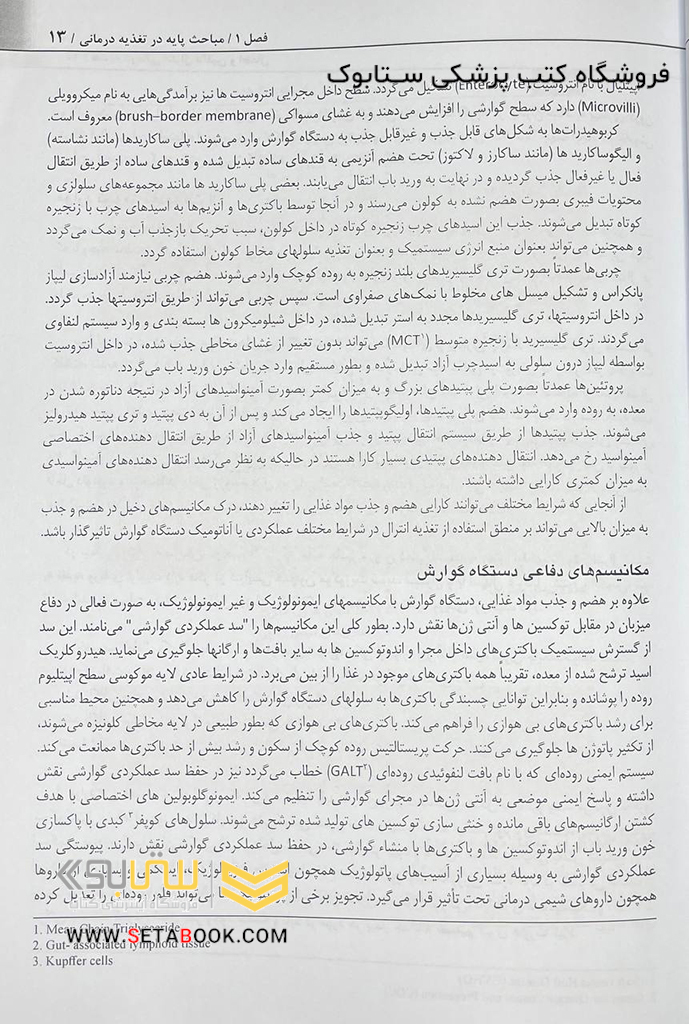 فصل ۱/ مباحث پایه در تغذیه درمانی / ۱۳
فروشگاه کتب پزشکی ستابوک
اپیتلیال با نام انتروسیت (Enterocyte) تشکیل می‌گردد. سطح داخل مجرایی انتروسیت ها نیز برآمدگی‌هایی به نام میکروویلی
(Microvilli) دارد که سطح گوارشی را افزایش می‌دهند و به غشای مسواکی (brush–border membrane) معروف است.
کربوهیدرات‌ها به شکل‌های قابل جذب و غیرقابل جذب به دستگاه گوارش وارد می‌شوند. پلی ساکاریدها (مانند نشاسته)
و الیگوساکارید ها (مانند ساکارز و لاکتوز) تحت هضم آنزیمی به قندهای ساده تبدیل شده و قندهای ساده از طریق انتقال
فعال یا غیرفعال جذب گردیده و در نهایت به ورید باب انتقال می‌یابند. بعضی پلی ساکارید ها مانند مجموعه‌های سلولزی و
محتویات فیبری بصورت هضم نشده به کولون می‌رسند و در آنجا توسط باکتری‌ها و آنزیم‌ها به اسیدهای چرب با زنجیره
کوتاه تبدیل می‌شوند. جذب این اسیدهای چرب زنجیره کوتاه در داخل کولون، سبب تحریک بازجذب آب و نمک می‌گردد
و همچنین می‌تواند بعنوان منبع انرژی سیستمیک و بعنوان تغذیه سلولهای مخاط کولون استفاده گردد.
چربی‌ها عمدتاً بصورت تری گلیسیریدهای بلند زنجیره به روده کوچک وارد می‌شوند. هضم چربی نیازمند آزادسازی لیپاز
پانکراس و تشکیل میسل های مخلوط با نمک‌های صفراوی است. سپس چربی می‌تواند از طریق انتروسیتها جذب گردد.
در داخل انتروسیتها، تری گلیسیریدها مجدد به استر تبدیل شده، در داخل شیلومیکرون ها بسته بندی و وارد سیستم لنفاوی
می‌گردند. تری گلیسیرید با زنجیره متوسط (MCT۱) می‌تواند بدون تغییر از غشای مخاطی جذب شده، در داخل انتروسیت
بواسطه لیپاز درون سلولی به اسیدچرب آزاد تبدیل شده و بطور مستقیم وارد جریان خون ورید باب می‌گردد.
پروتئین‌ها عمدتاً بصورت پلی پپتیدهای بزرگ و به میزان کمتر بصورت آمینواسیدهای آزاد در نتیجه دناتوره شدن در
معده، به روده وارد می‌شوند. هضم پلی پپتیدها، اولیگوپپتیدها را ایجاد می‌کند و پس از آن به دی پپتید و تری پپتید هیدرولیز
می‌شوند. جذب پپتیدها از طریق سیستم انتقال پپتید و جذب آمینواسیدهای آزاد از طریق انتقال دهنده‌های اختصاصی
آمینواسید رخ می‌دهد. انتقال دهنده‌های پپتیدی بسیار کارا هستند در حالیکه به نظر می‌رسد انتقال دهنده‌های آمینواسیدی
به میزان کمتری کارایی داشته باشند.
از آنجایی که شرایط مختلف می‌توانند کارایی هضم و جذب مواد غذایی را تغییر دهند، درک مکانیسم‌های دخیل در هضم و جذب
به میزان بالایی می‌تواند بر منطق استفاده از تغذیه انترال در شرایط مختلف عملکردی یا آناتومیک دستگاه گوارش تاثیرگذار باشد.
مکانیسم‌های دفاعی دستگاه گوارش
علاوه بر هضم و جذب مواد غذایی، دستگاه گوارش با مکانیسمهای ایمونولوژیک و غیر ایمونولوژیک، به صورت فعالی در دفاع
میزبان در مقابل توکسین ها و آنتی ژن‌ها نقش دارد. بطور کلی این مکانیسم‌ها را "سد عملکردی گوارشی" می‌نامند. این سد
از گسترش سیستمیک باکتری‌های داخل مجرا و اندوتوکسین ها به سایر بافت‌ها و ارگانها جلوگیری می‌نماید. هیدروکلریک
اسید ترشح شده از معده، تقریباً همه باکتری‌های موجود در غذا را از بین می‌برد. در شرایط عادی لایه موکوسی سطح اپیتلیوم
روده را پوشانده و بنابراین توانایی چسبندگی باکتری‌ها به سلولهای دستگاه گوارش را کاهش می‌دهد و همچنین محیط مناسبی
برای رشد باکتری‌های بی هوازی را فراهم می‌کند. باکتری‌های بی هوازی که بطور طبیعی در لایه مخاطی کلونیزه می‌شوند،
از تکثیر پاتوژن ها جلوگیری می‌کنند. حرکت پریستالتیس روده کوچک از سکون و رشد بیش از حد باکتری‌ها ممانعت می‌کند.
سیستم ایمنی روده‌ای که با نام بافت لنفوئیدی روده‌ای (GALT۲) خطاب می‌گردد نیز در حفظ سد عملکردی گوارشی نقش
داشته و پاسخ ایمنی موضعی به آنتی ژن‌ها در مجرای گوارشی را تنظیم می‌کند. ایمونوگلوبولین های اختصاصی با هدف
کشتن ارگانیسم‌های باقی مانده و خنثی سازی توکسین های تولید شده ترشح می‌شوند. سلول‌های کوپفر۳ کبدی با پاکسازی
خون ورید باب از اندوتوکسین ها و باکتری‌ها با منشاء گوارشی، در حفظ سد عملکردی گوارشی نقش دارند. پیوستگی سد
عملکردی گوارشی به وسیله بسیاری از آسیب‌های پاتولوژیک همچون
همچون داروهای شیمی درمانی تحت تأثیر قرار می‌گیرد. تجویز برخی از می‌تواند فلور روده‌ای را تعدیل کرده
ستابوک
فروشگاه اینترنتی کتاب
1. Mean Chain Triglyceride
WWW.SETABOOK.COM
2. Gut- associated lymphoid tissue
3. Kupffer cells